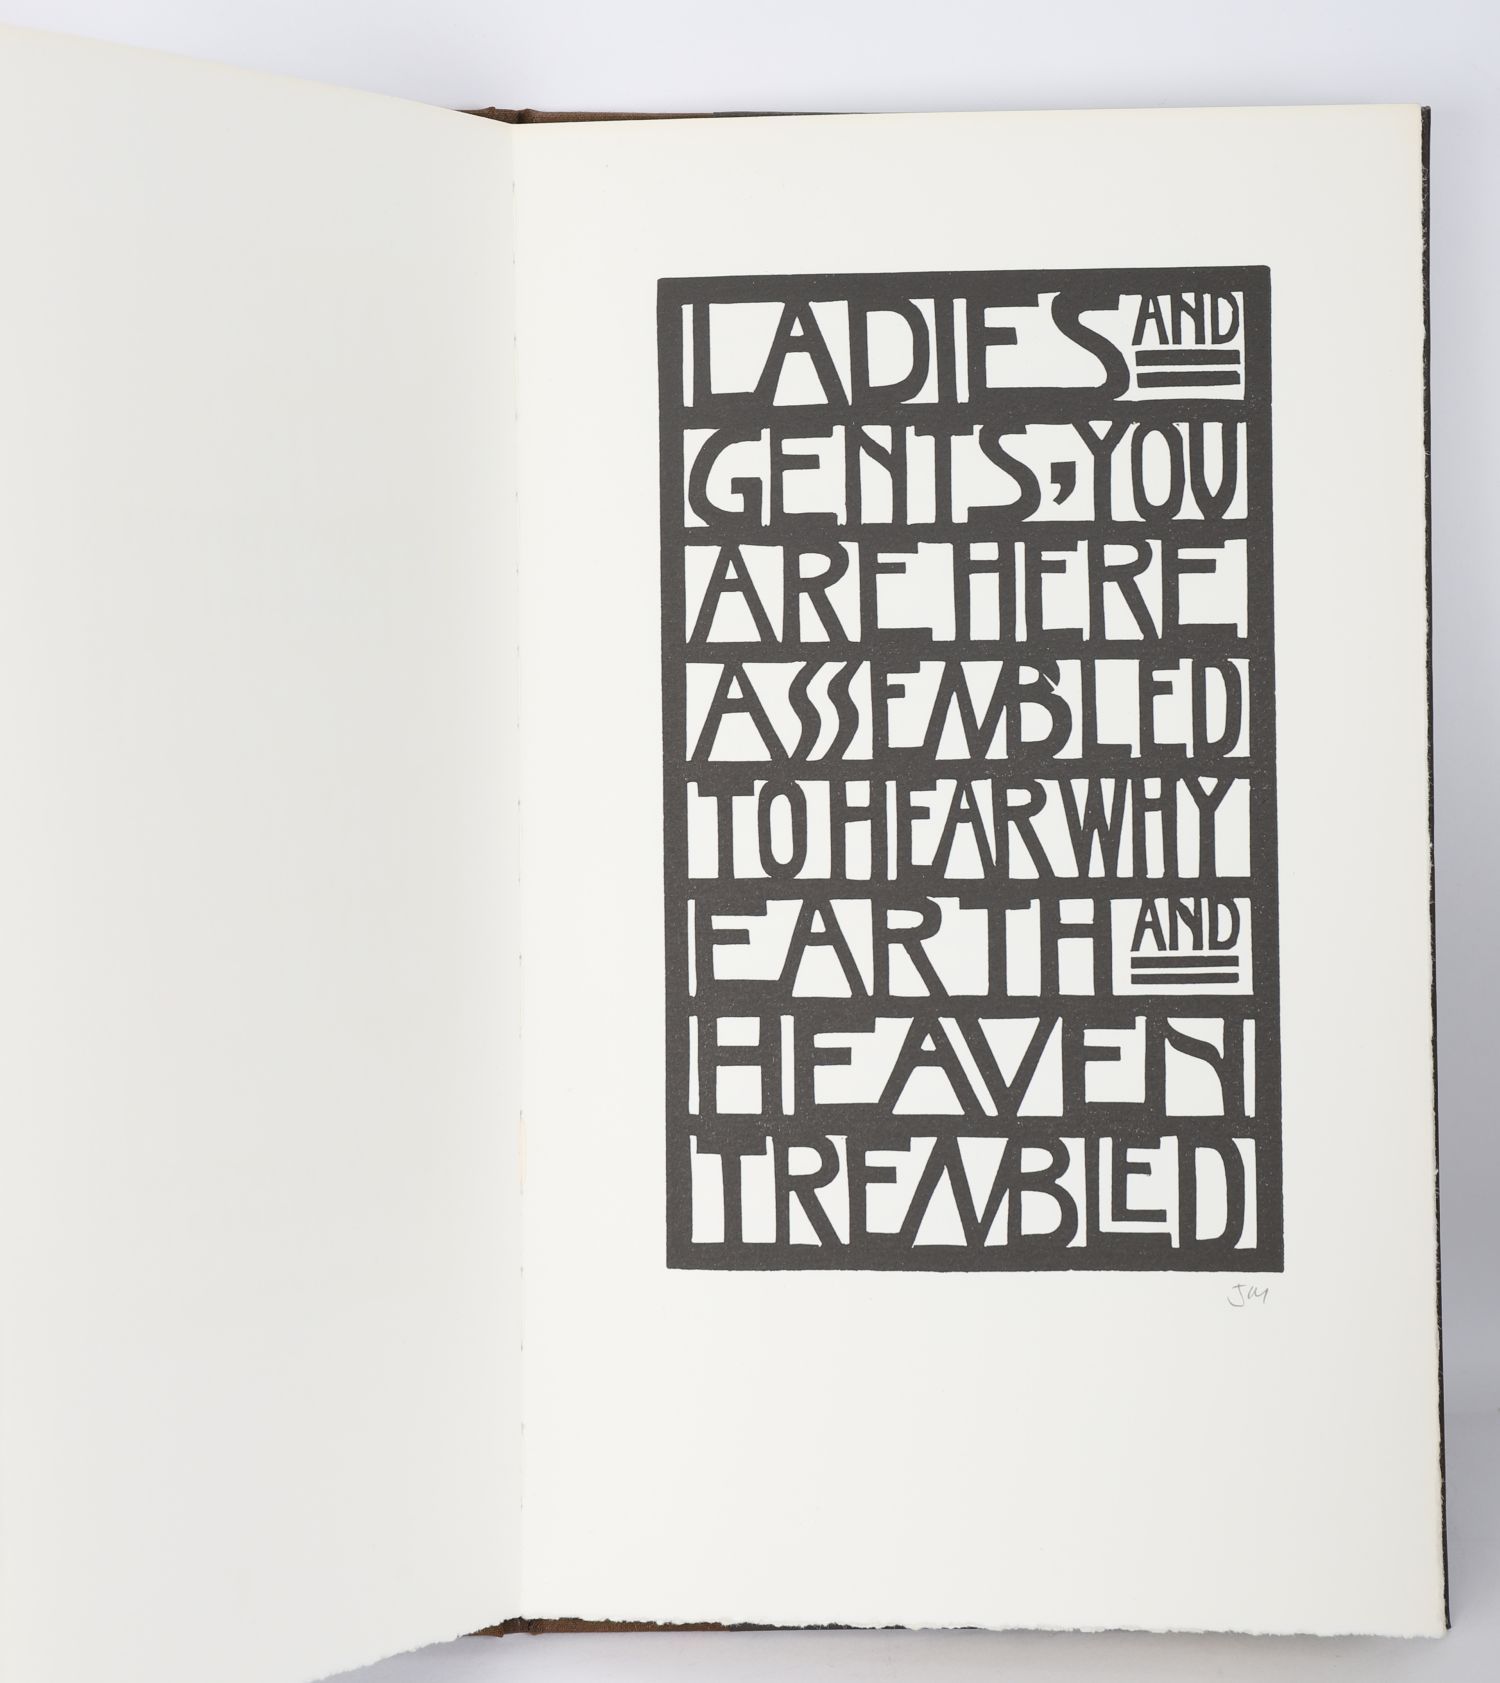 LADIES AND
GENTS, YOU
ARE HERE
ASSEMBLED
TO HEAR WHY
EARTH AND
HEAVEN
TREMBLED
JM